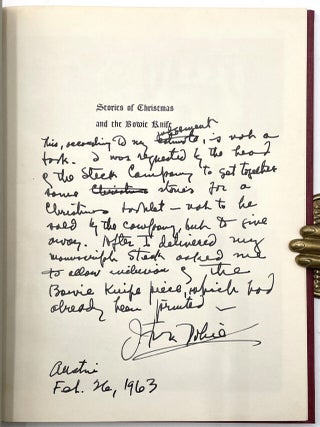 Stories of Christmas
and the Bowie Knife
judgement
This, according to my estimate, is not a
book. I was requested by the head
of the Steck Company to get together
some Christmas stories for a
Christmas booklet — not to be
sold by the company, but to give
away. After I delivered my
manuscript Steck asked me
to allow inclusion of the
Bowie Knife piece, which had
already been printed —
J Frank Dobie
Austin
Feb. 26, 1963